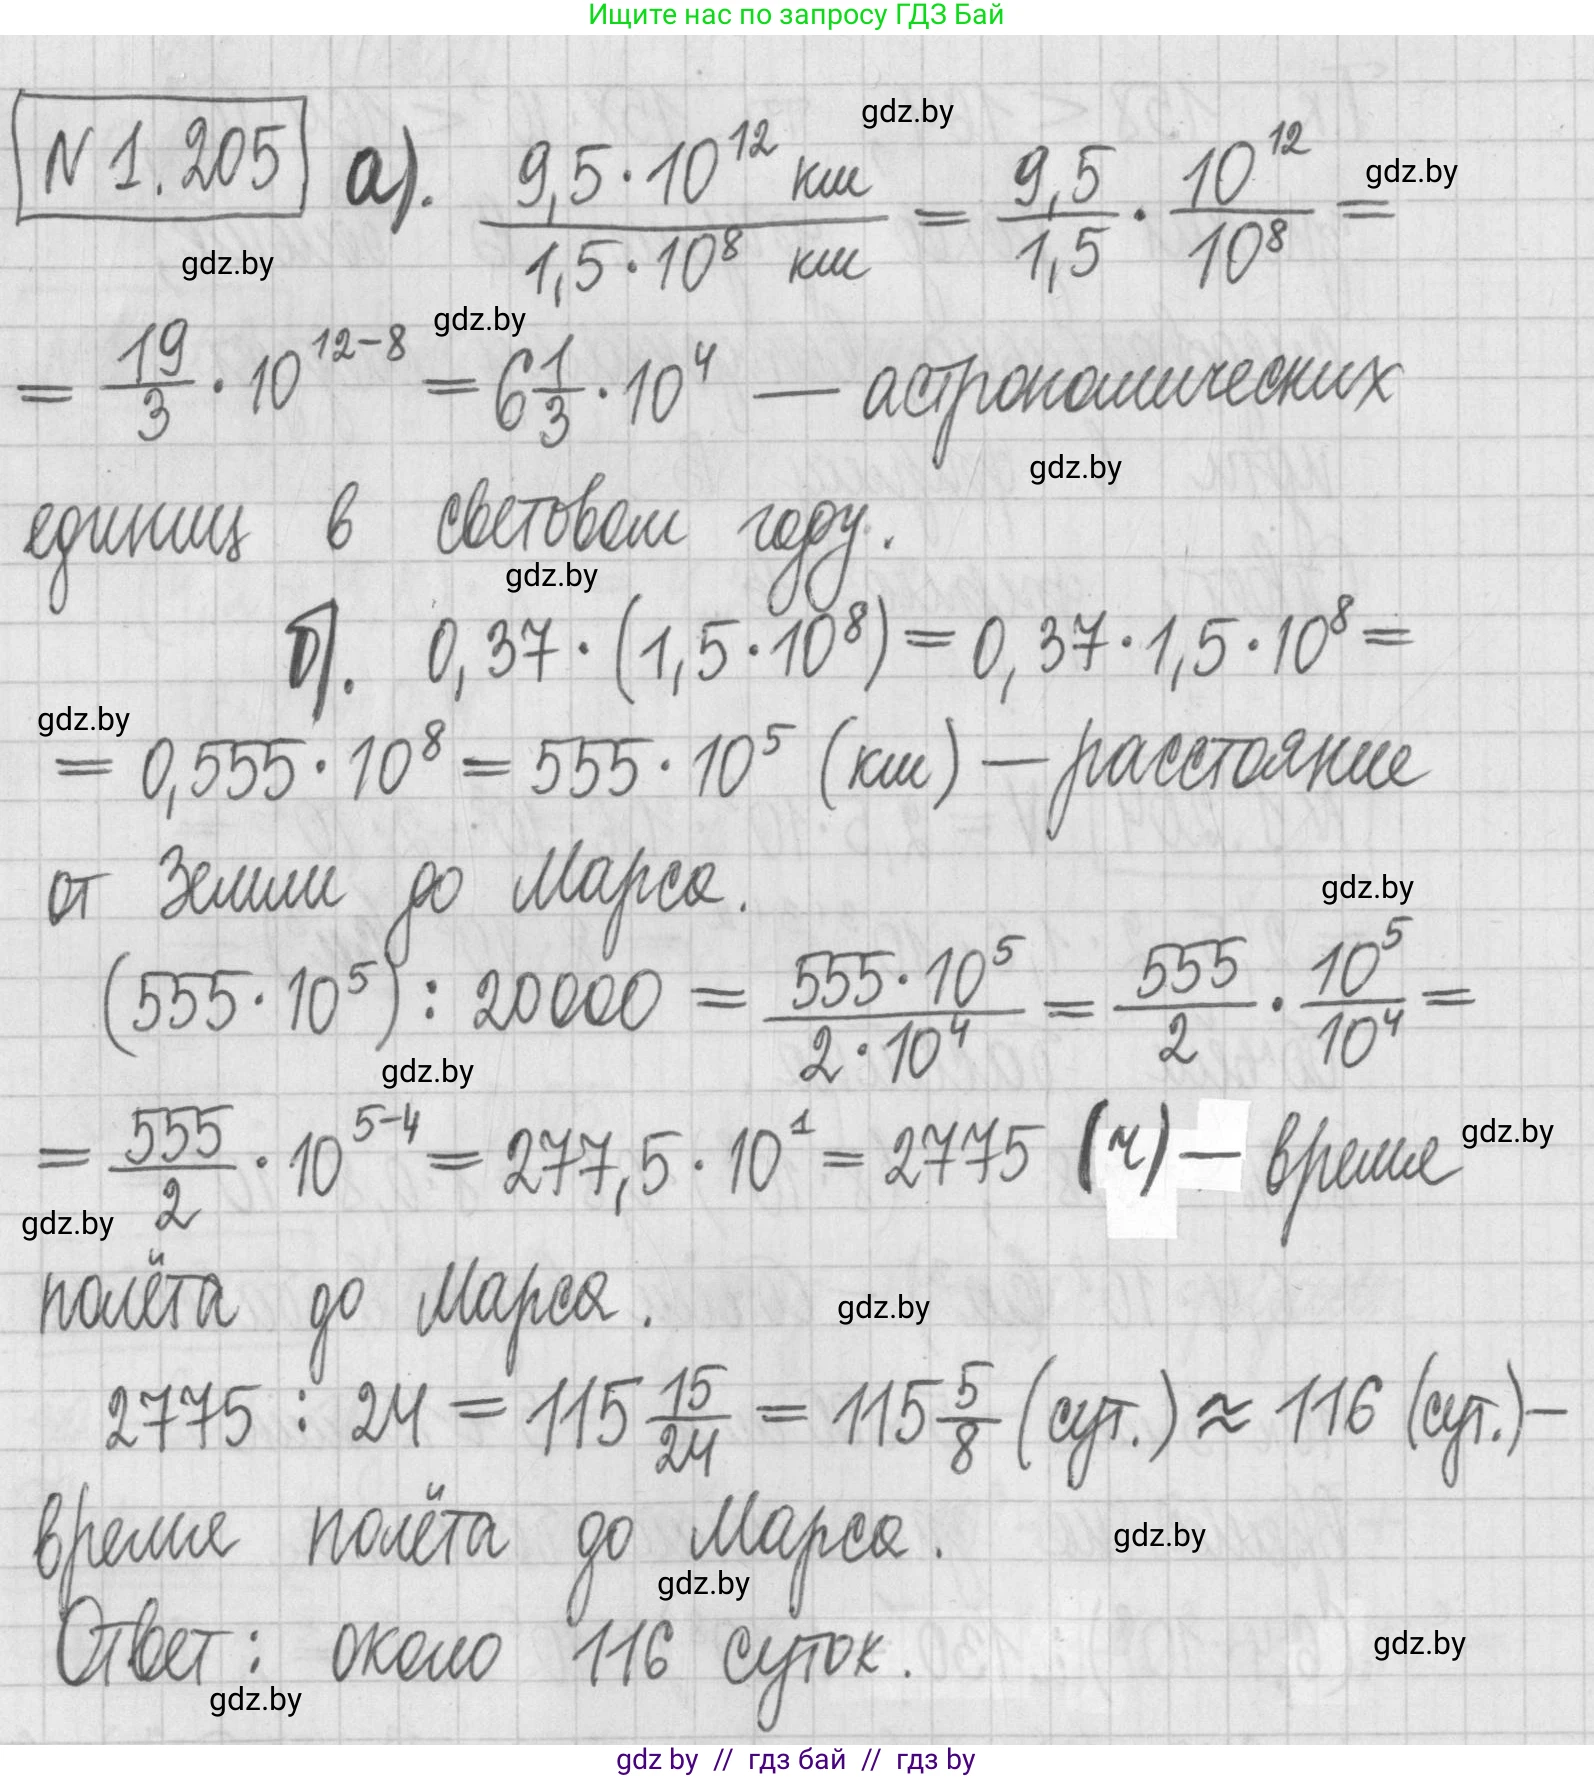 Ищите нас по запросу ГДЗ Бай
gdz.by
N 1.205 а). 9,5·10^12 км / 1,5·10^8 км = 9,5/1,5 · 10^12/10^8 =
gdz.by
gdz.by
gdz.by
= 19/3 · 10^12-8 = 6 1/3 · 10^4 — астрономических
gdz.by
единиц в световом году.
gdz.by
б). 0,37·(1,5·10^8) = 0,37·1,5·10^8 =
gdz.by
= 0,555·10^8 = 555·10^5 (км) — расстояние
от Земли до Марса.
gdz.by
(555·10^5) : 20000 = 555·10^5 / 2·10^4 = 555/2 · 10^5/10^4 =
gdz.by
= 555/2 · 10^5-4 = 277,5·10^1 = 2775 (ч) — время
gdz.by
gdz.by
полёта до Марса.
gdz.by
2775 : 24 = 115 15/24 = 115 5/8 (сут.) ≈ 116 (сут.) —
время полёта до Марса.
gdz.by
gdz.by
Ответ: около 116 суток.
gdz.by
gdz.by
gdz by // гдз бай // гдз by